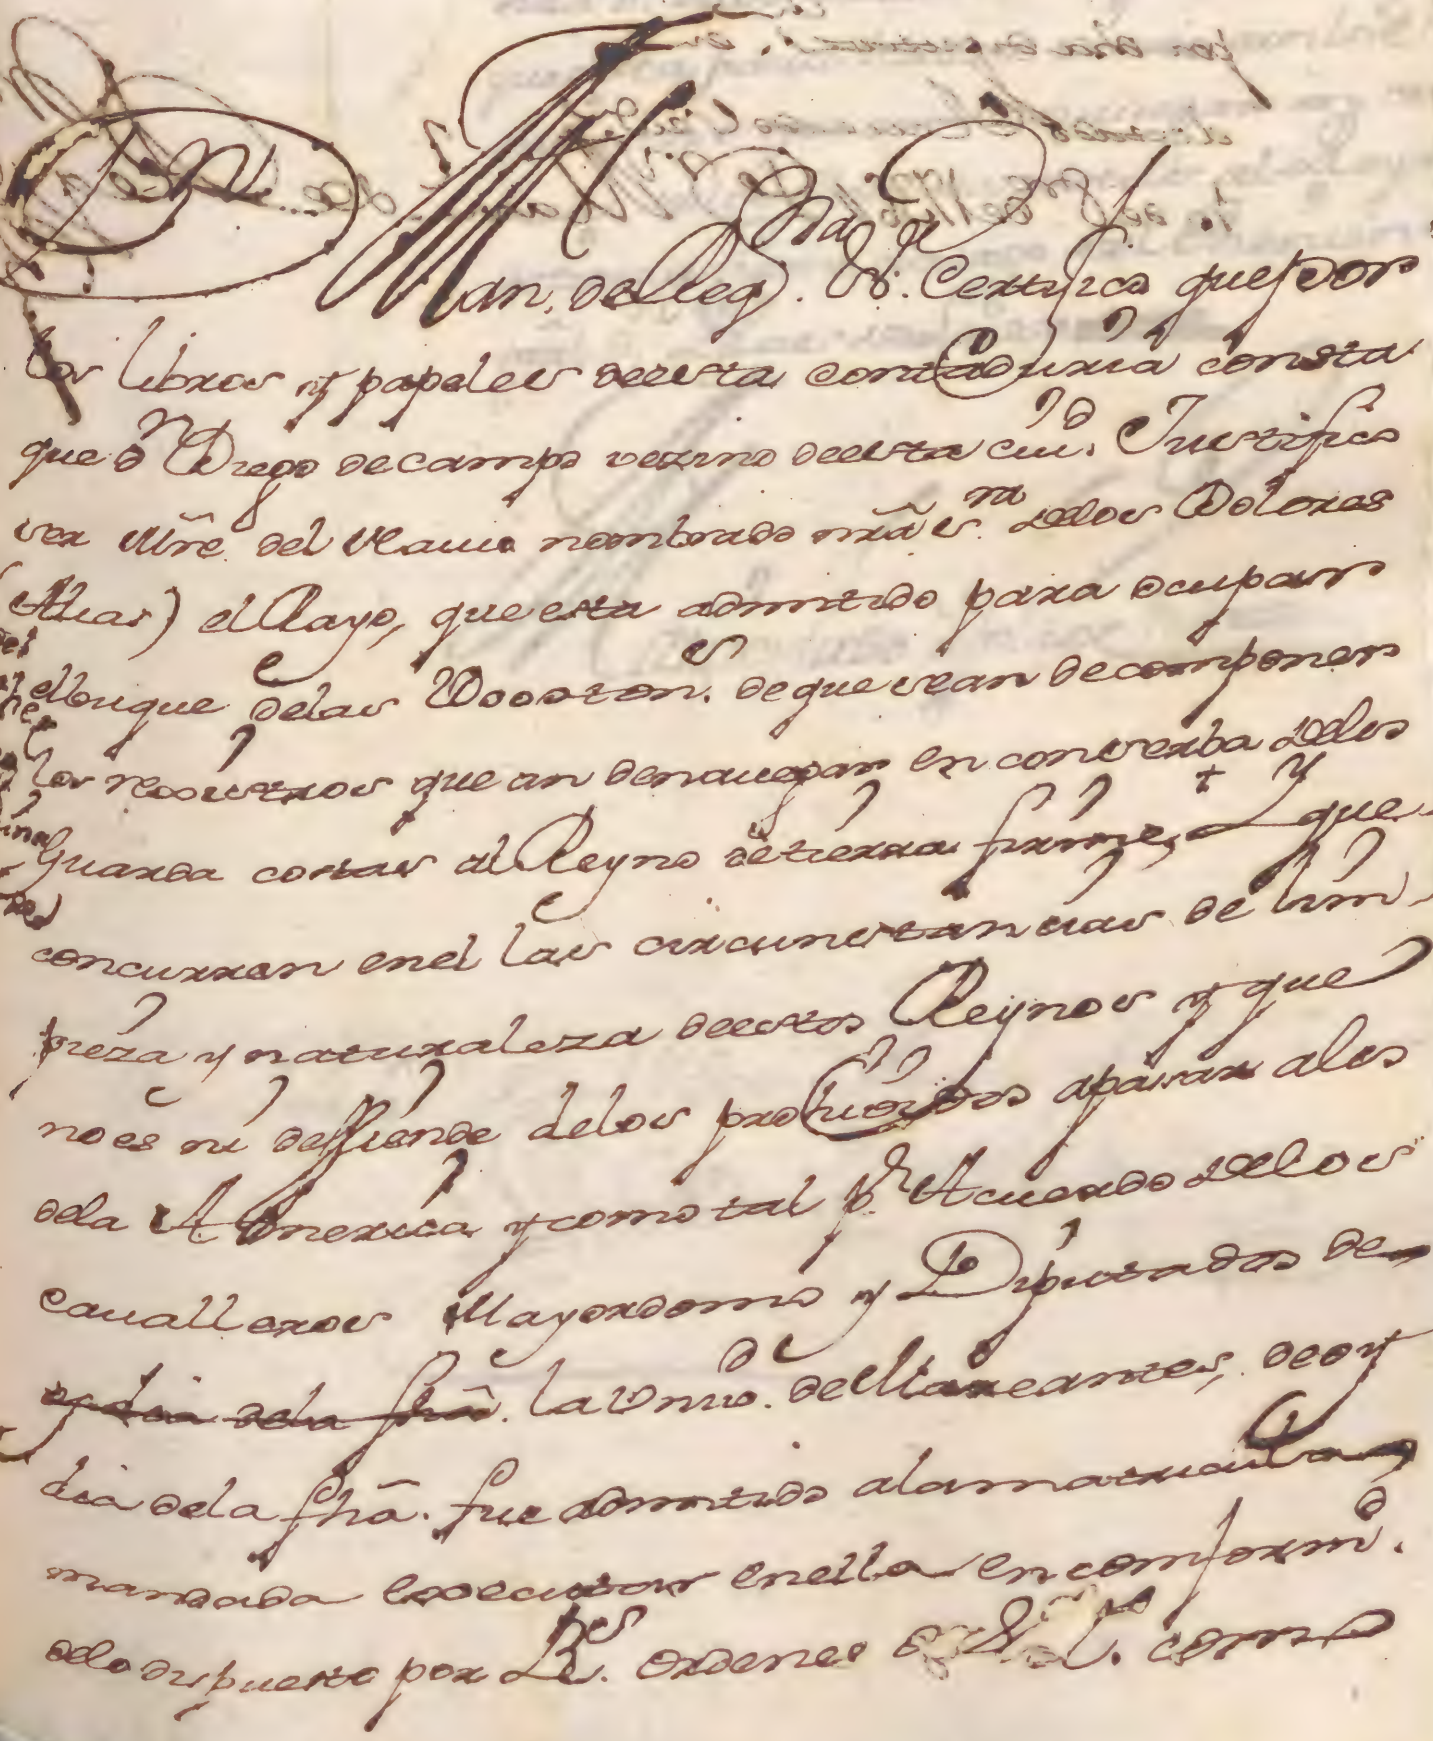 Man. de Reg.
Certifico que por
los libros y papeles de esta contaduria consta
que Dn Diego de campo vezino de esta ciud. Justifico
ser Mre del Navio nombrado nra sra de los Dolores
(Alias) el Rayo, que esta admitido para ocupar
el buque de las tons. de que sean de componer
los rexistros que an de navegar en conserba de los
Guarda costas al Reyno de tierra firme, y que
concurren en el las circunstancias de lim
pieza y naturaleza de estos Reynos y que
no es ni desfiende de los prohividos a pasar a los
de la America y como tal pr. Acuerdo de los
cavalleros Mayordomo y Diputados de
oy dia de la fha. la Univd. de Mareantes, de oy
dia de la fha. fue admitido a la matricula
mandada execuctar en ella en conformd.
de lo dispuesto por Rs. ordenes de S. como